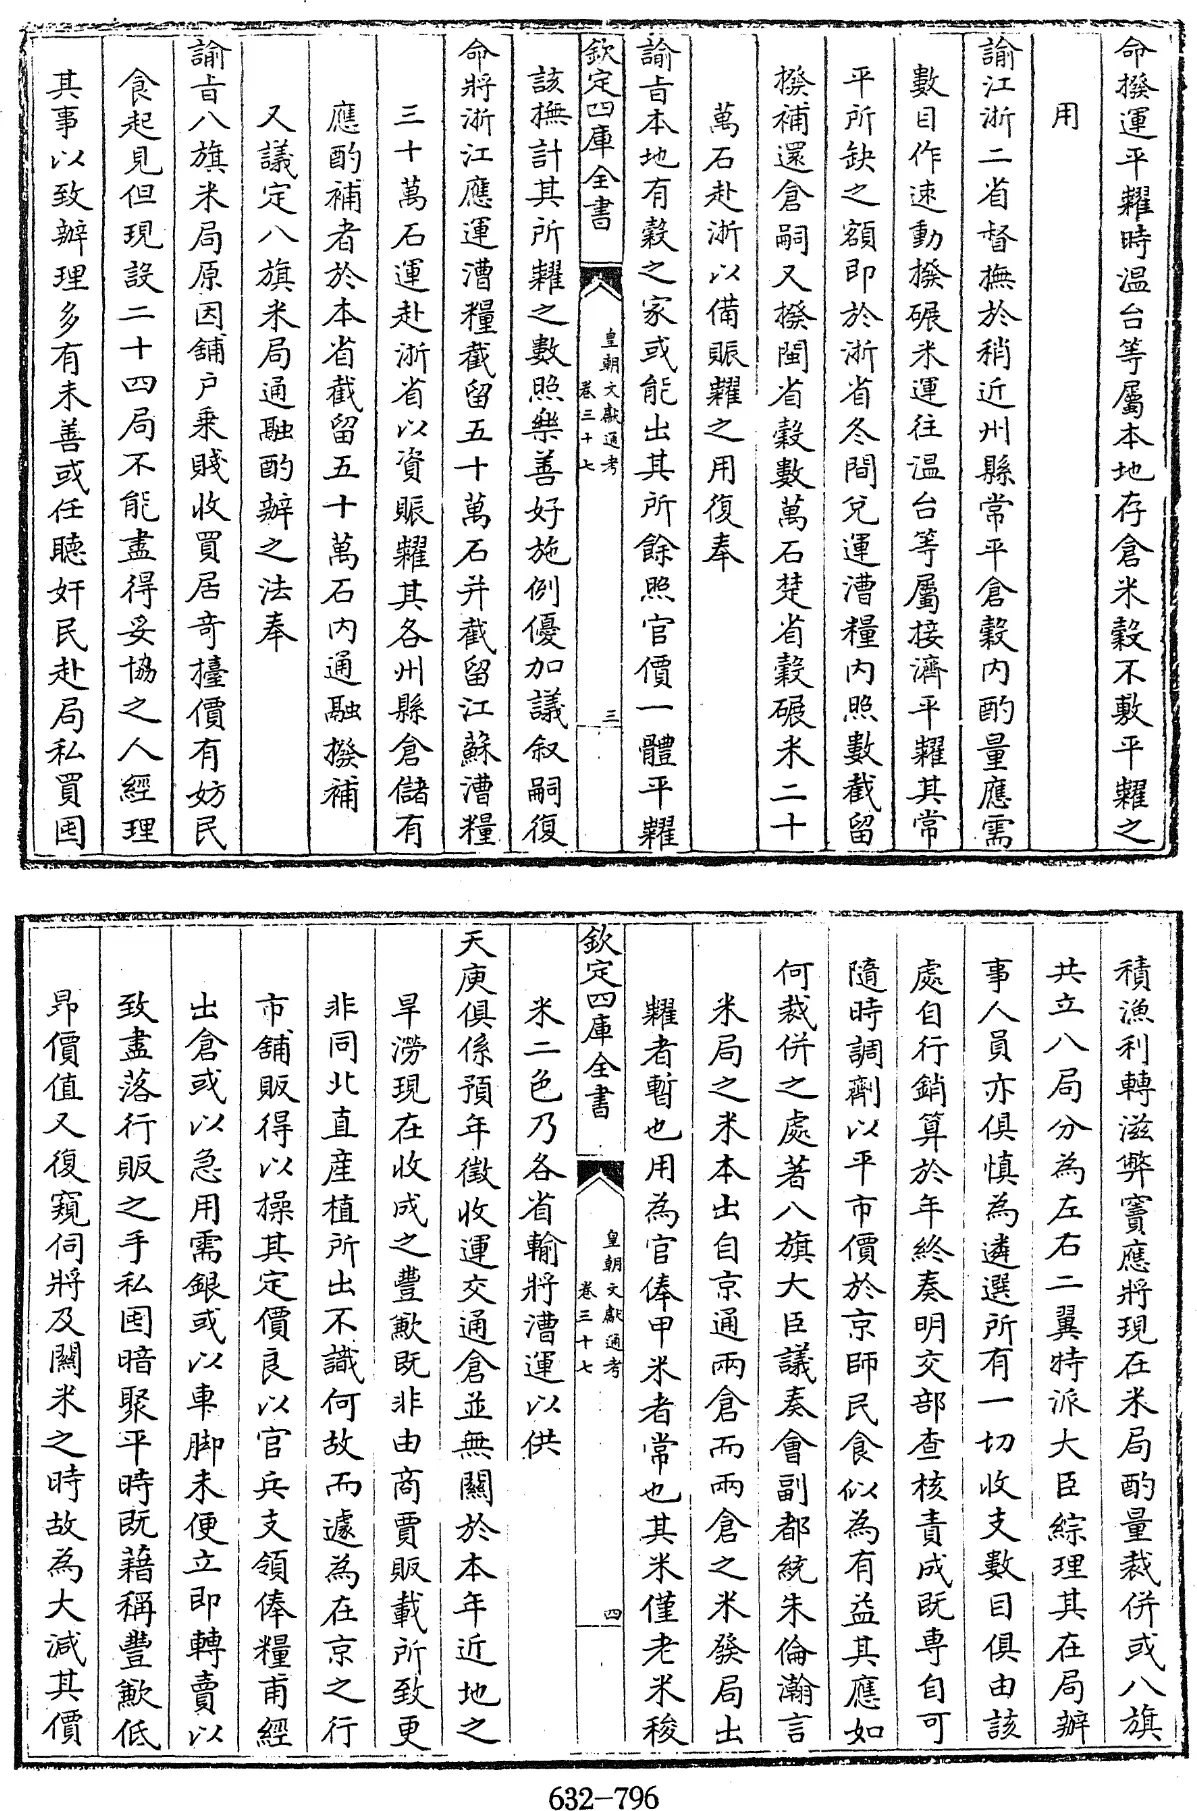 命撥運平糶時温台等屬本地存倉米穀不敷平糶之
用
諭江浙二省督撫於稍近州縣常平倉穀内酌量應需
數目作速動撥碾米運往温台等屬接濟平糶其常
平所缺之額即於浙省冬間兌運漕糧内照數截留
撥補還倉嗣又撥閩省穀數萬石楚省穀碾米二十
萬石赴浙以備賑糶之用復奉
諭㫖本地有穀之家或能出其所餘照官價一體平糶
欽定四庫全書
皇朝文獻通考
卷三十七
三
該撫計其所糶之數照樂善好施例優加議叙嗣復
命將浙江應運漕糧截留五十萬石并截留江蘇漕糧
三十萬石運赴浙省以資賑糶其各州縣倉儲有
應酌補者於本省截留五十萬石内通融撥補
又議定八旗米局通融酌辦之法奉
諭㫖八旗米局原因舖戸乗賤收買居奇擡價有妨民
食起見但現設二十四局不能盡得妥協之人經理
其事以致辦理多有未善或任聽奸民赴局私買囤
積漁利轉滋弊竇應將現在米局酌量裁併或八旗
共立八局分為左右二翼特派大臣綜理其在局辦
事人員亦俱慎為遴選所有一切收支數目俱由該
處自行銷算於年終奏明交部查核責成既専自可
隨時調劑以平市價於京師民食似為有益其應如
何裁併之處著八旗大臣議奏會副都統朱倫瀚言
米局之米本出自京通兩倉而兩倉之米發局出
糶者暫也用為官俸甲米者常也其米僅老米稜
欽定四庫全書
皇朝文獻通考
卷三十七
四
米二色乃各省輸將漕運以供
天庾俱係預年徵收運交通倉並無關於本年近地之
旱澇現在收成之豐歉既非由商賈販載所致更
非同北直産植所出不識何故而遽為在京之行
市舖販得以操其定價良以官兵支領俸糧甫經
出倉或以急用需銀或以車脚未便立即轉賣以
致盡落行販之手私囤暗聚平時既藉稱豐歉低
昂價值又復窺伺將及關米之時故為大減其價
632-796